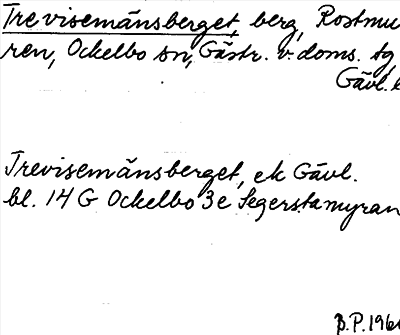 Trevisemänsberget, berg, Rostmu
ren, Ockelbo sn, Gästr. v. doms. tg
Gävl.
Trevisemänsberget, ek Gävl.
bl. 14 G Ockelbo 3e Segerstamyran
B.P. 196